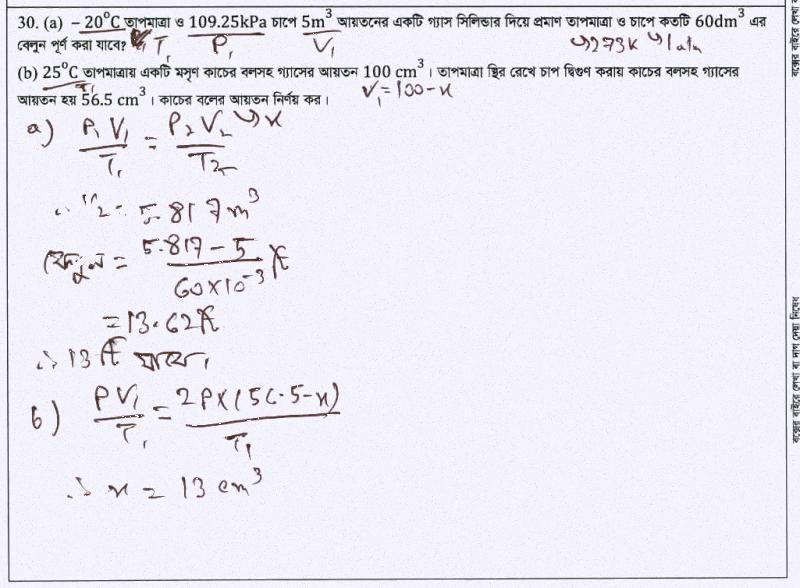 30. (a) – 20°C তাপমাত্রা ও 109.25kPa চাপে 5m³ আয়তনের একটি গ্যাস সিলিন্ডার দিয়ে প্রমাণ তাপমাত্রা ও চাপে কতটি 60dm³ এর
বেলুন পূর্ণ করা যাবে? T₁ P₁ V₁ ↳273K ↳1atm
(b) 25°C তাপমাত্রায় একটি মসৃণ কাচের বলসহ গ্যাসের আয়তন 100 cm³। তাপমাত্রা স্থির রেখে চাপ দ্বিগুণ করায় কাচের বলসহ গ্যাসের
T₁ V₁ = 100-x
আয়তন হয় 56.5 cm³। কাচের বলের আয়তন নির্ণয় কর।
↳x
a) P₁V₁/T₁ = P₂V₂/T₂
∴ V₂ = 5.817 m³
বেলুন = 5.817 – 5 / 60×10⁻³ টি
= 13.62 টি
∴ 13 টি যাবে।
b) PV₁/T₁ = 2P×(56.5-x)/T₁
∴ x = 13 cm³
বক্সের বাইরে লেখা বা দাগ দেয়া নিষেধ